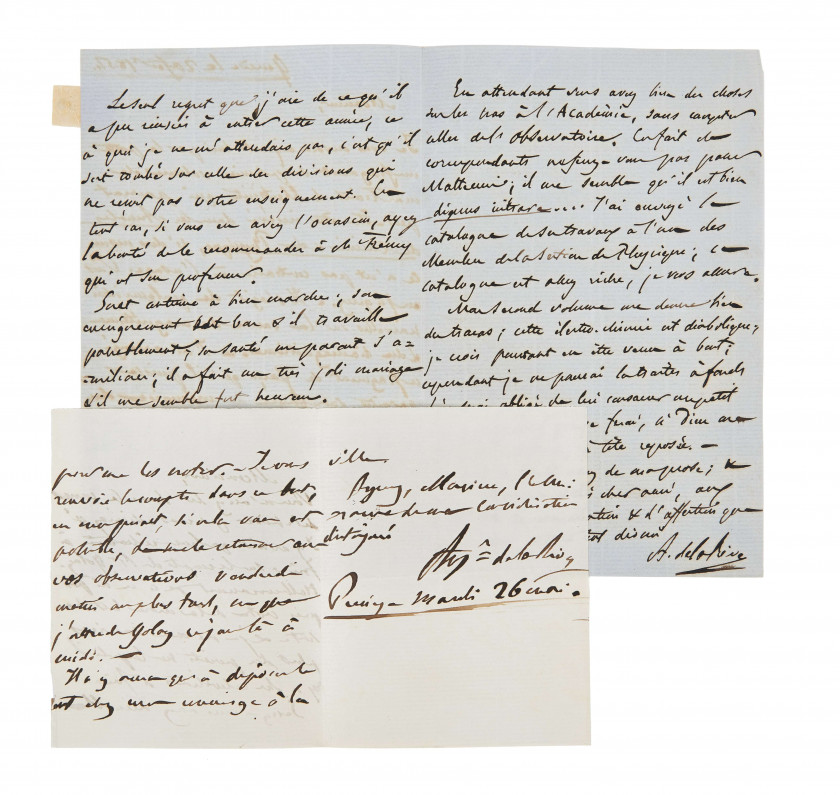 Le seul regret que j'aie de ce qu'il
a pu réussir à entrer cette année, ce
à quoi je ne m'attendais pas, c'est qu'il
soit tombé sur celle des divisions qui
ne reçoit pas votre enseignement. En
tout cas, si vous en avez l'occasion, ayez
la bonté de le recommander à Mr Frémy
qui est son professeur.
Soret continue à bien marcher; son
enseignement est bon & il travaille
passablement, sa santé me paraît s'a-
méliorer; il a fait un très joli mariage
& il me semble fort heureux.
En attendant vous avez bien des choses
sur les bras à l'Académie, sans compter
celles de l'Observatoire. En fait de
correspondants ne ferez-vous pas passer
Matteucci; il me semble qu'il est bien
dignus intrare.... J'ai envoyé le
catalogue de ses travaux à l'un des
Membres de la Section de Physique; ce
catalogue est assez riche, je vous assure.
Mon second volume me donne bien
du tracas; cette électro-chimie est diabolique;
je crois pourtant en être venu à bout;
cependant je ne pourrai la traiter à fonds
obligé de lui consacrer un petit
ferai, si Dieu
à tête reposée. —
de ma prose; &
cher ami, aux
& d'affection que
A. de la Rive
pour me les noter. — Je vous
renvoie le compte dans ce but,
en vous priant si cela vous est
possible, de me le retourner avec
vos observations vendredi
matin au plus tard, vu que
j'attends Golay ce jour là à
midi. —
Il n'y aura qu'à déposer le
tout chez mon concierge à la
ville.
Agréez, Monsieur, l'
de ma considération
distinguée
Aug.te de la Rive
Presinge Mardi 26 mai.